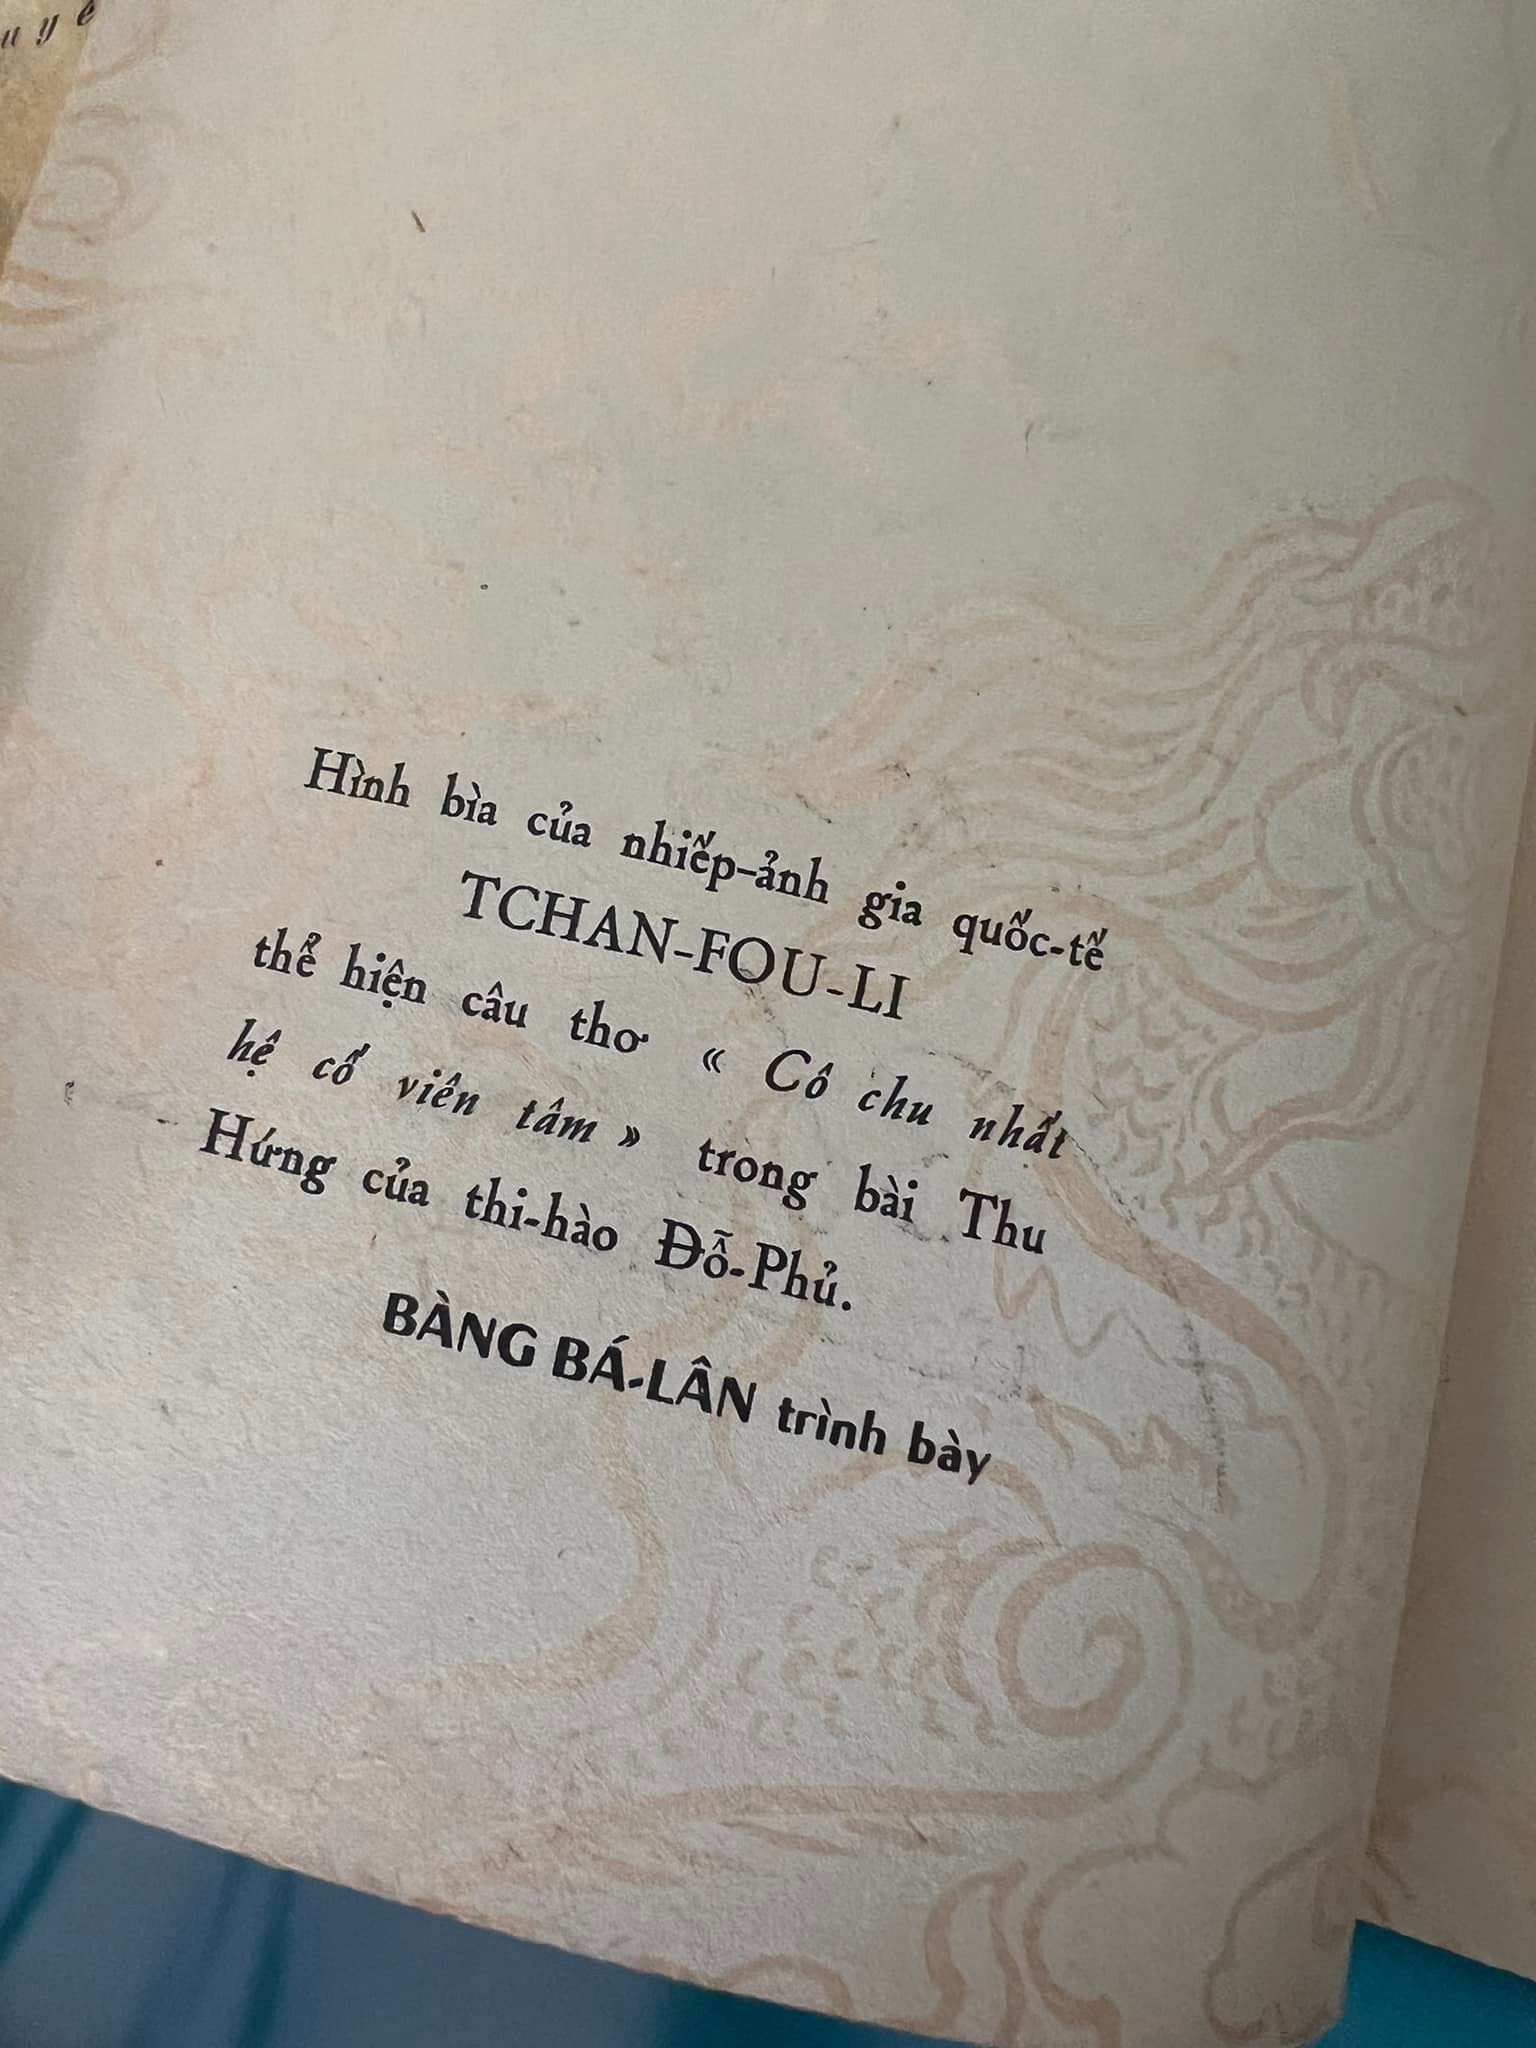 uyê
Hình bìa của nhiếp-ảnh gia quốc-tế
TCHAN-FOU-LI
thể hiện câu thơ « Cô chu nhất
hệ cố viên tâm » trong bài Thu
Hứng của thi-hào Đỗ-Phủ.
BÀNG BÁ-LÂN trình bày